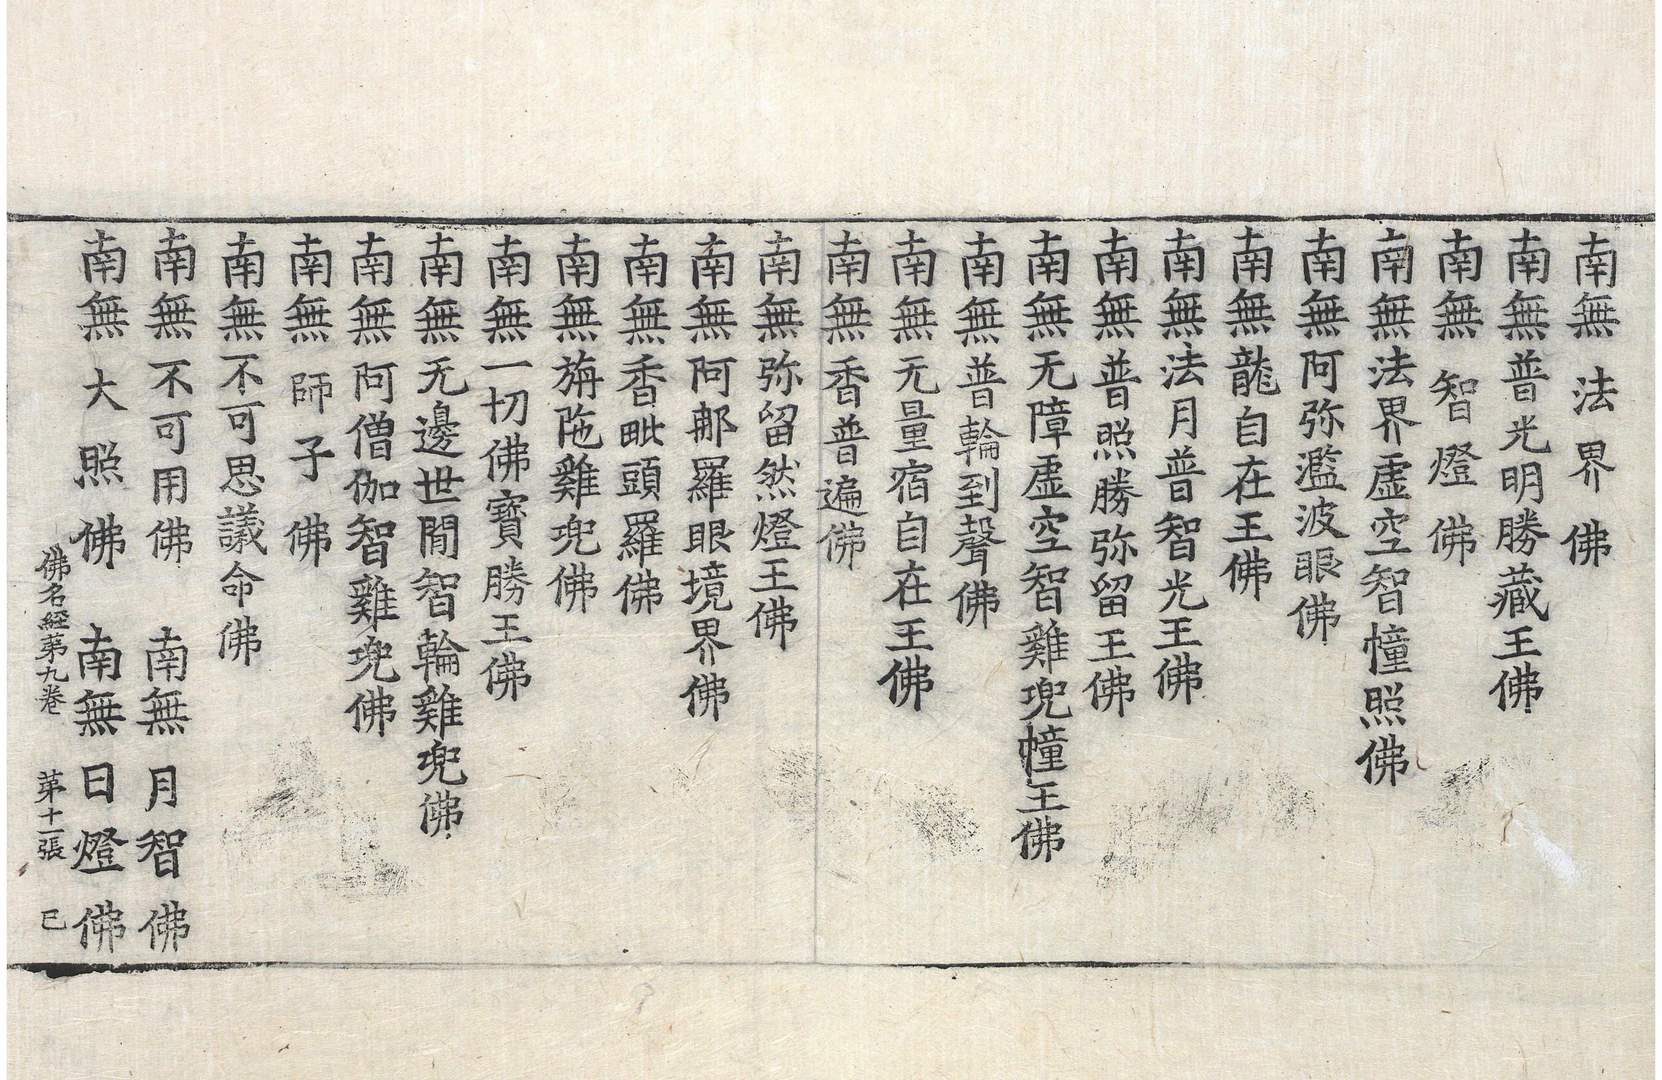 南無法界佛
南無普光明勝藏王佛
南無智燈佛
南無法界虛空智幢照佛
南無阿弥濫波眼佛
南無龍自在王佛
南無法月普智光王佛
南無普照勝弥留王佛
南無无障虛空智雞兜幢王佛
南無普輪到聲佛
南無无量宿自在王佛
南無香普遍佛
南無弥留然燈王佛
南無阿那羅眼境界佛
南無香毗頭羅佛
南無旃陁雞兜佛
南無一切佛寶勝王佛
南無无邊世間智輪雞兜佛
南無阿僧伽智雞兜佛
南無師子佛
南無不可思議命佛
南無不可用佛 南無月智佛
南無大照佛 南無日燈佛
佛名經第九卷 第十一張 巳